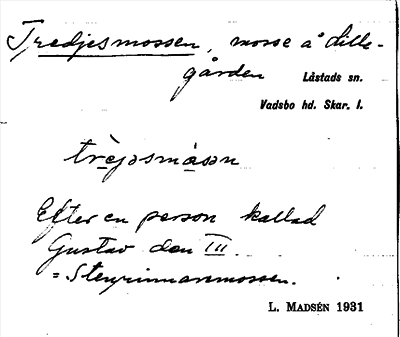 Tredjesmossen, mosse å Lille-
gården Låstads sn.
Vadsbo hd. Skar. l.
trèjəsmåsən
Efter en person kallad
Gustav den III.
= Stenrinnaremossen.
L. MADSÉN 1931